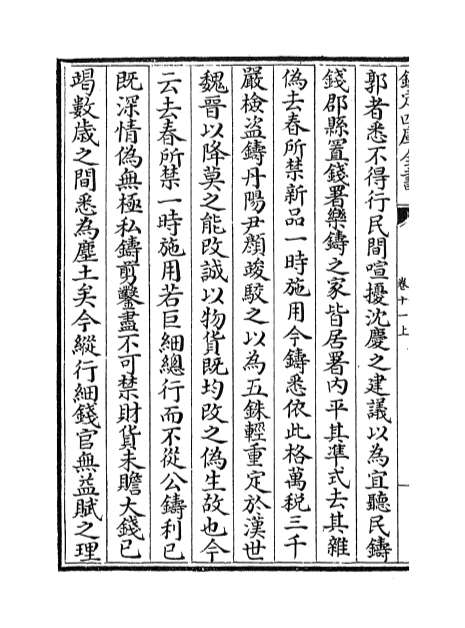 欽定四庫全書
卷十一上
郭者悉不得行民間喧擾沈慶之建議以為宜聽民鑄
錢郡縣置錢署樂鑄之家皆居署內平其準式去其雜
偽去春所禁新品一時施用今鑄悉依此格萬税三千
嚴檢盜鑄丹陽尹顔竣駮之以為五銖輕重定於漢世
魏晉以降莫之能改誠以物貨既均改之偽生故也今
云去春所禁一時施用若巨細總行而不從公鑄利已
既深情偽無極私鑄剪鑿盡不可禁財貨未贍大錢已
竭數歲之間悉為塵土矣今縱行細錢官無益賦之理